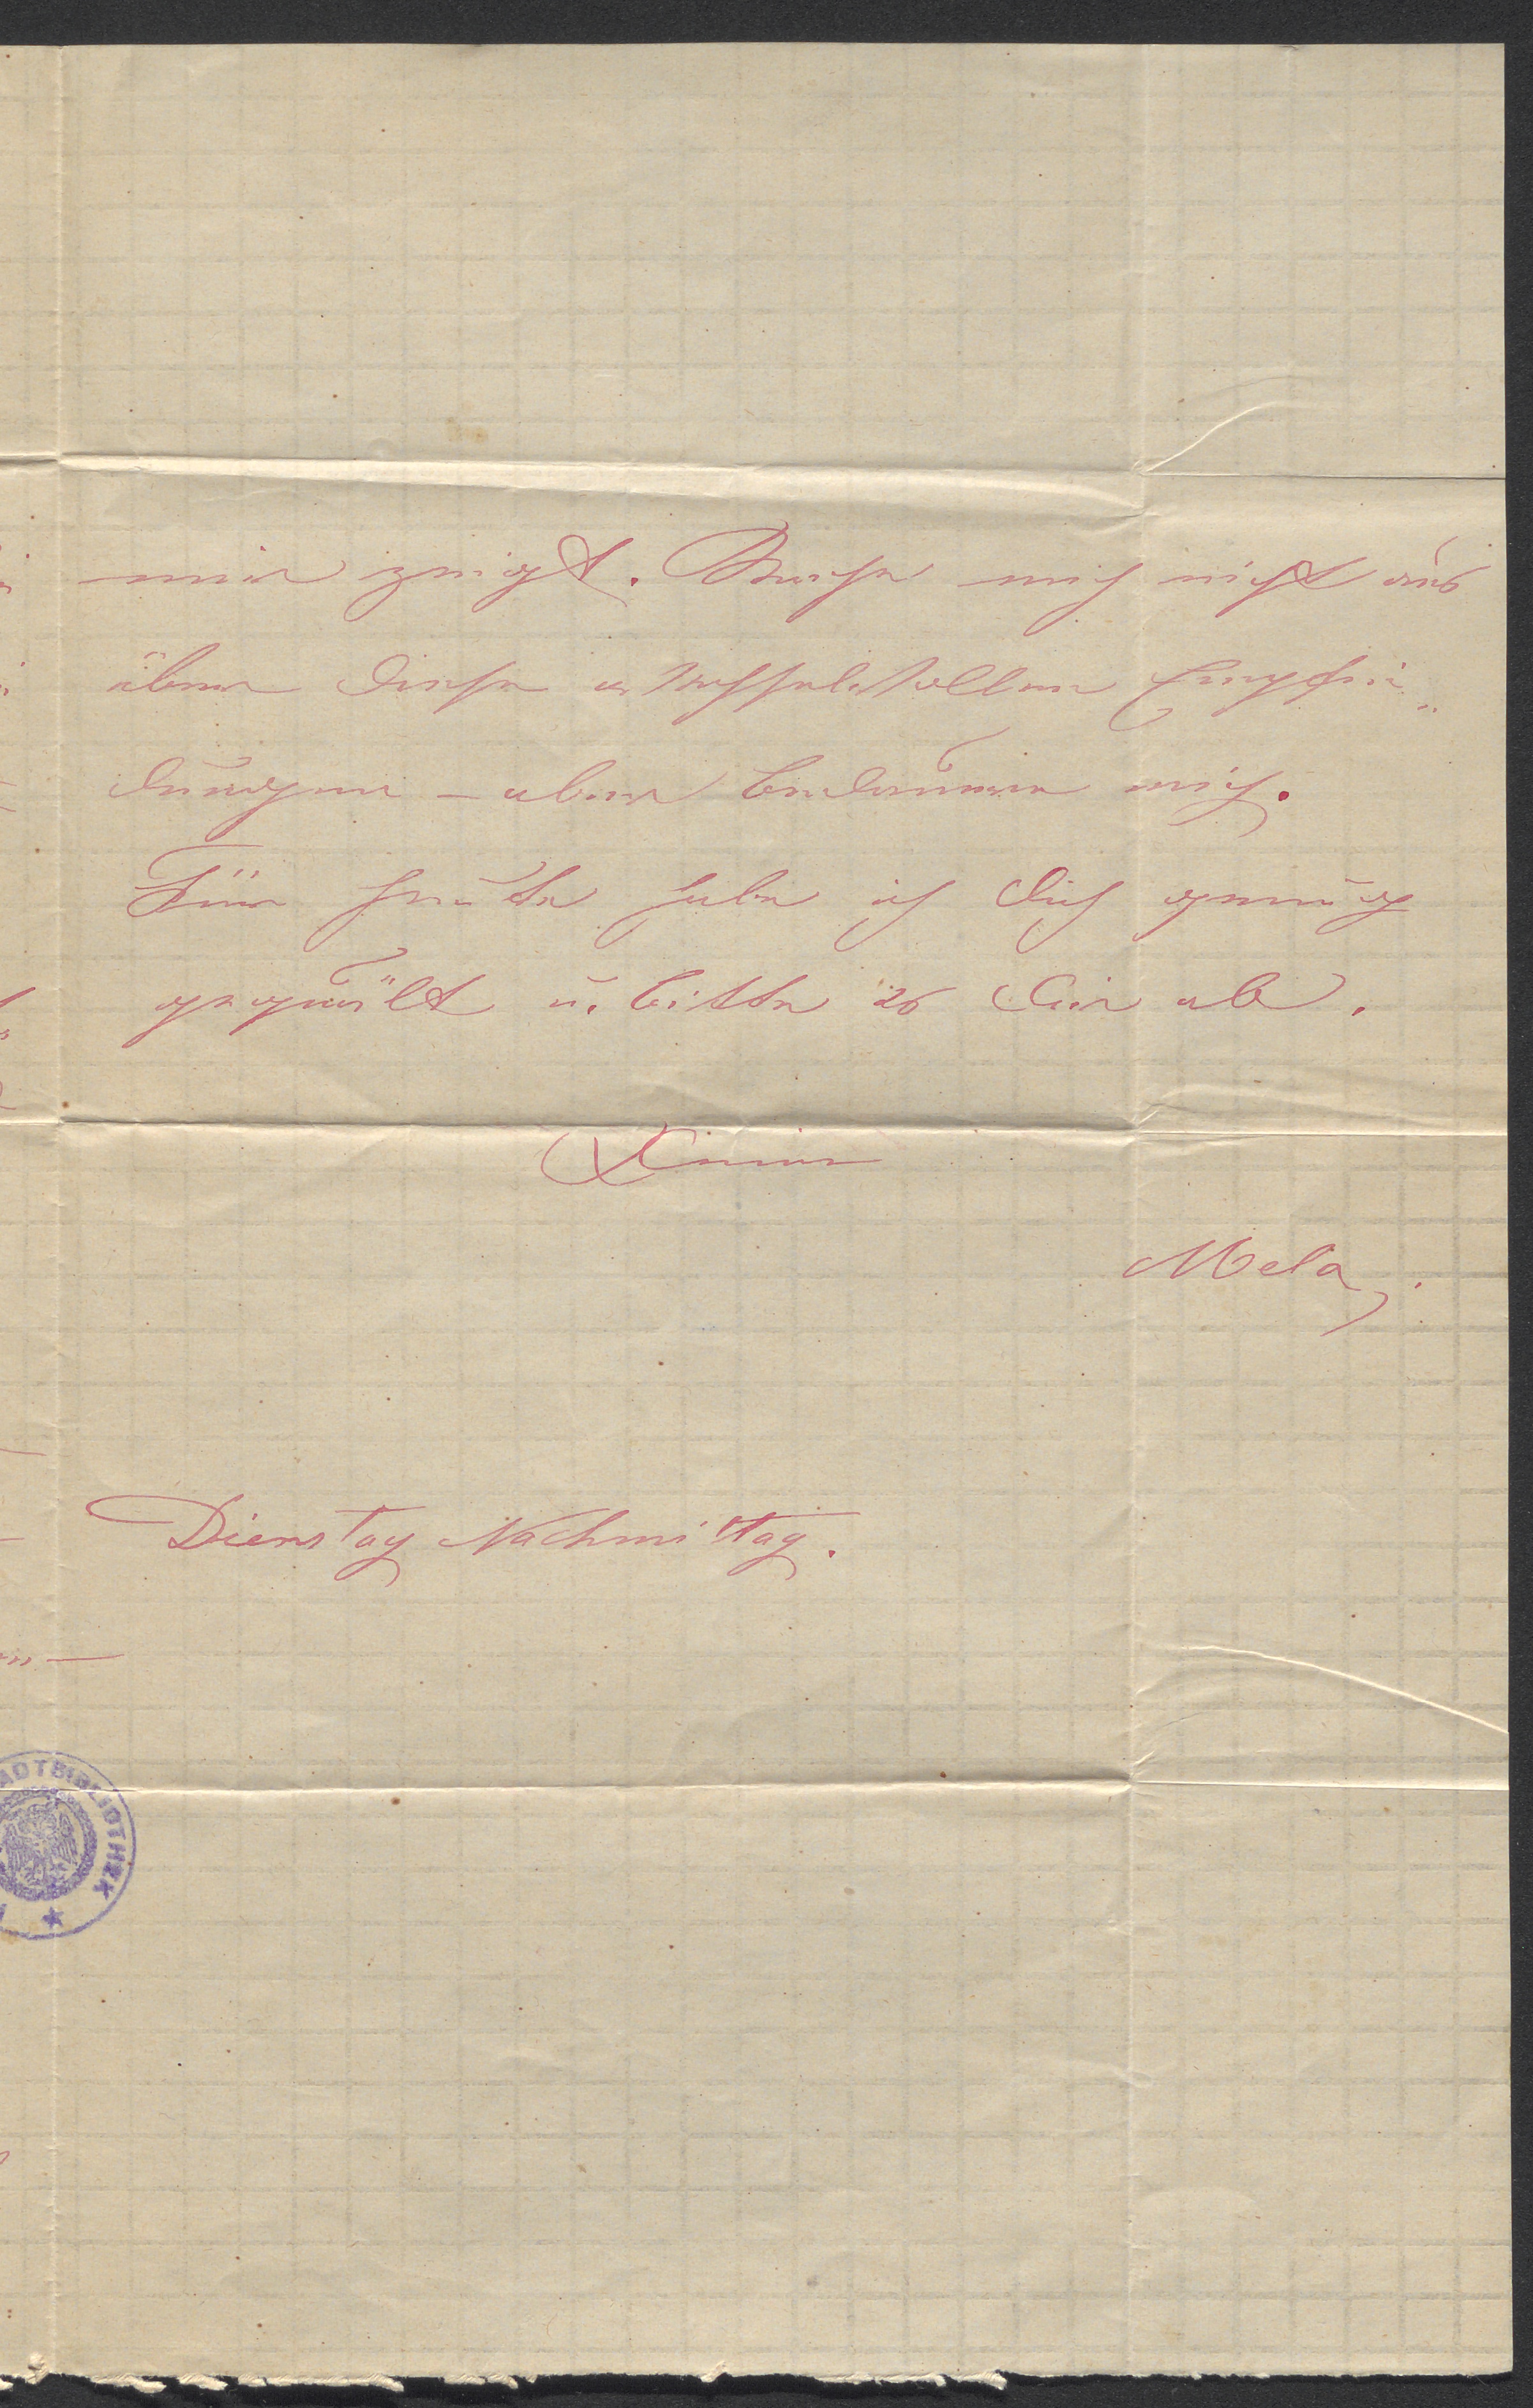 mir zeigt. Lache mich nicht aus
über diese wechselvollen Empfin„
dungen – aber bedauere mich.
Für heute habe ich Dich genug
gequält u. bitte es Dir ab.
Deine
Mela.
Dienstag Nachmittag.
ADTBIBLIOTHEK